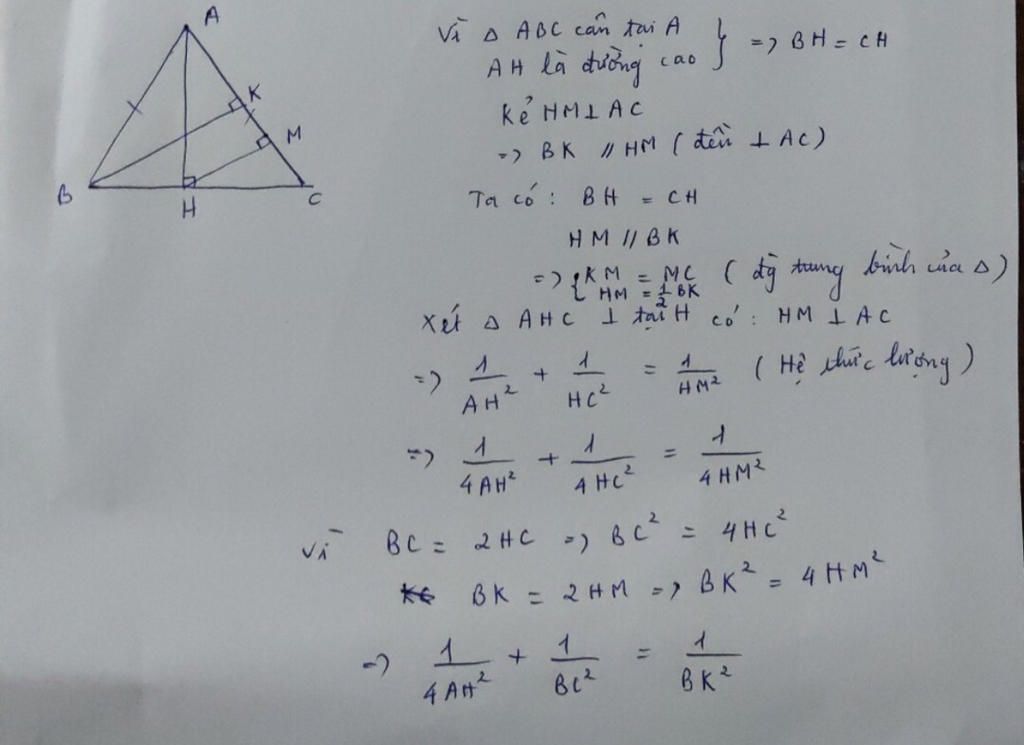 A
K
M
B
H
C
Vì △ ABC cân tại A
AH là đường cao } => BH = CH
Kẻ HM ⊥ AC
=> BK // HM ( đều ⊥ AC)
Ta có : BH = CH
HM // BK
=> { KM = MC ( đg trung bình của △ )
HM = 1/2 BK
Xét △ AHC ⊥ tại H có : HM ⊥ AC
=> 1/AH² + 1/HC² = 1/HM² ( Hệ thức lượng )
=> 1/4AH² + 1/4HC² = 1/4HM²
Vì BC = 2HC => BC² = 4HC²
BK = 2HM => BK² = 4HM²
=> 1/4AH² + 1/BC² = 1/BK²